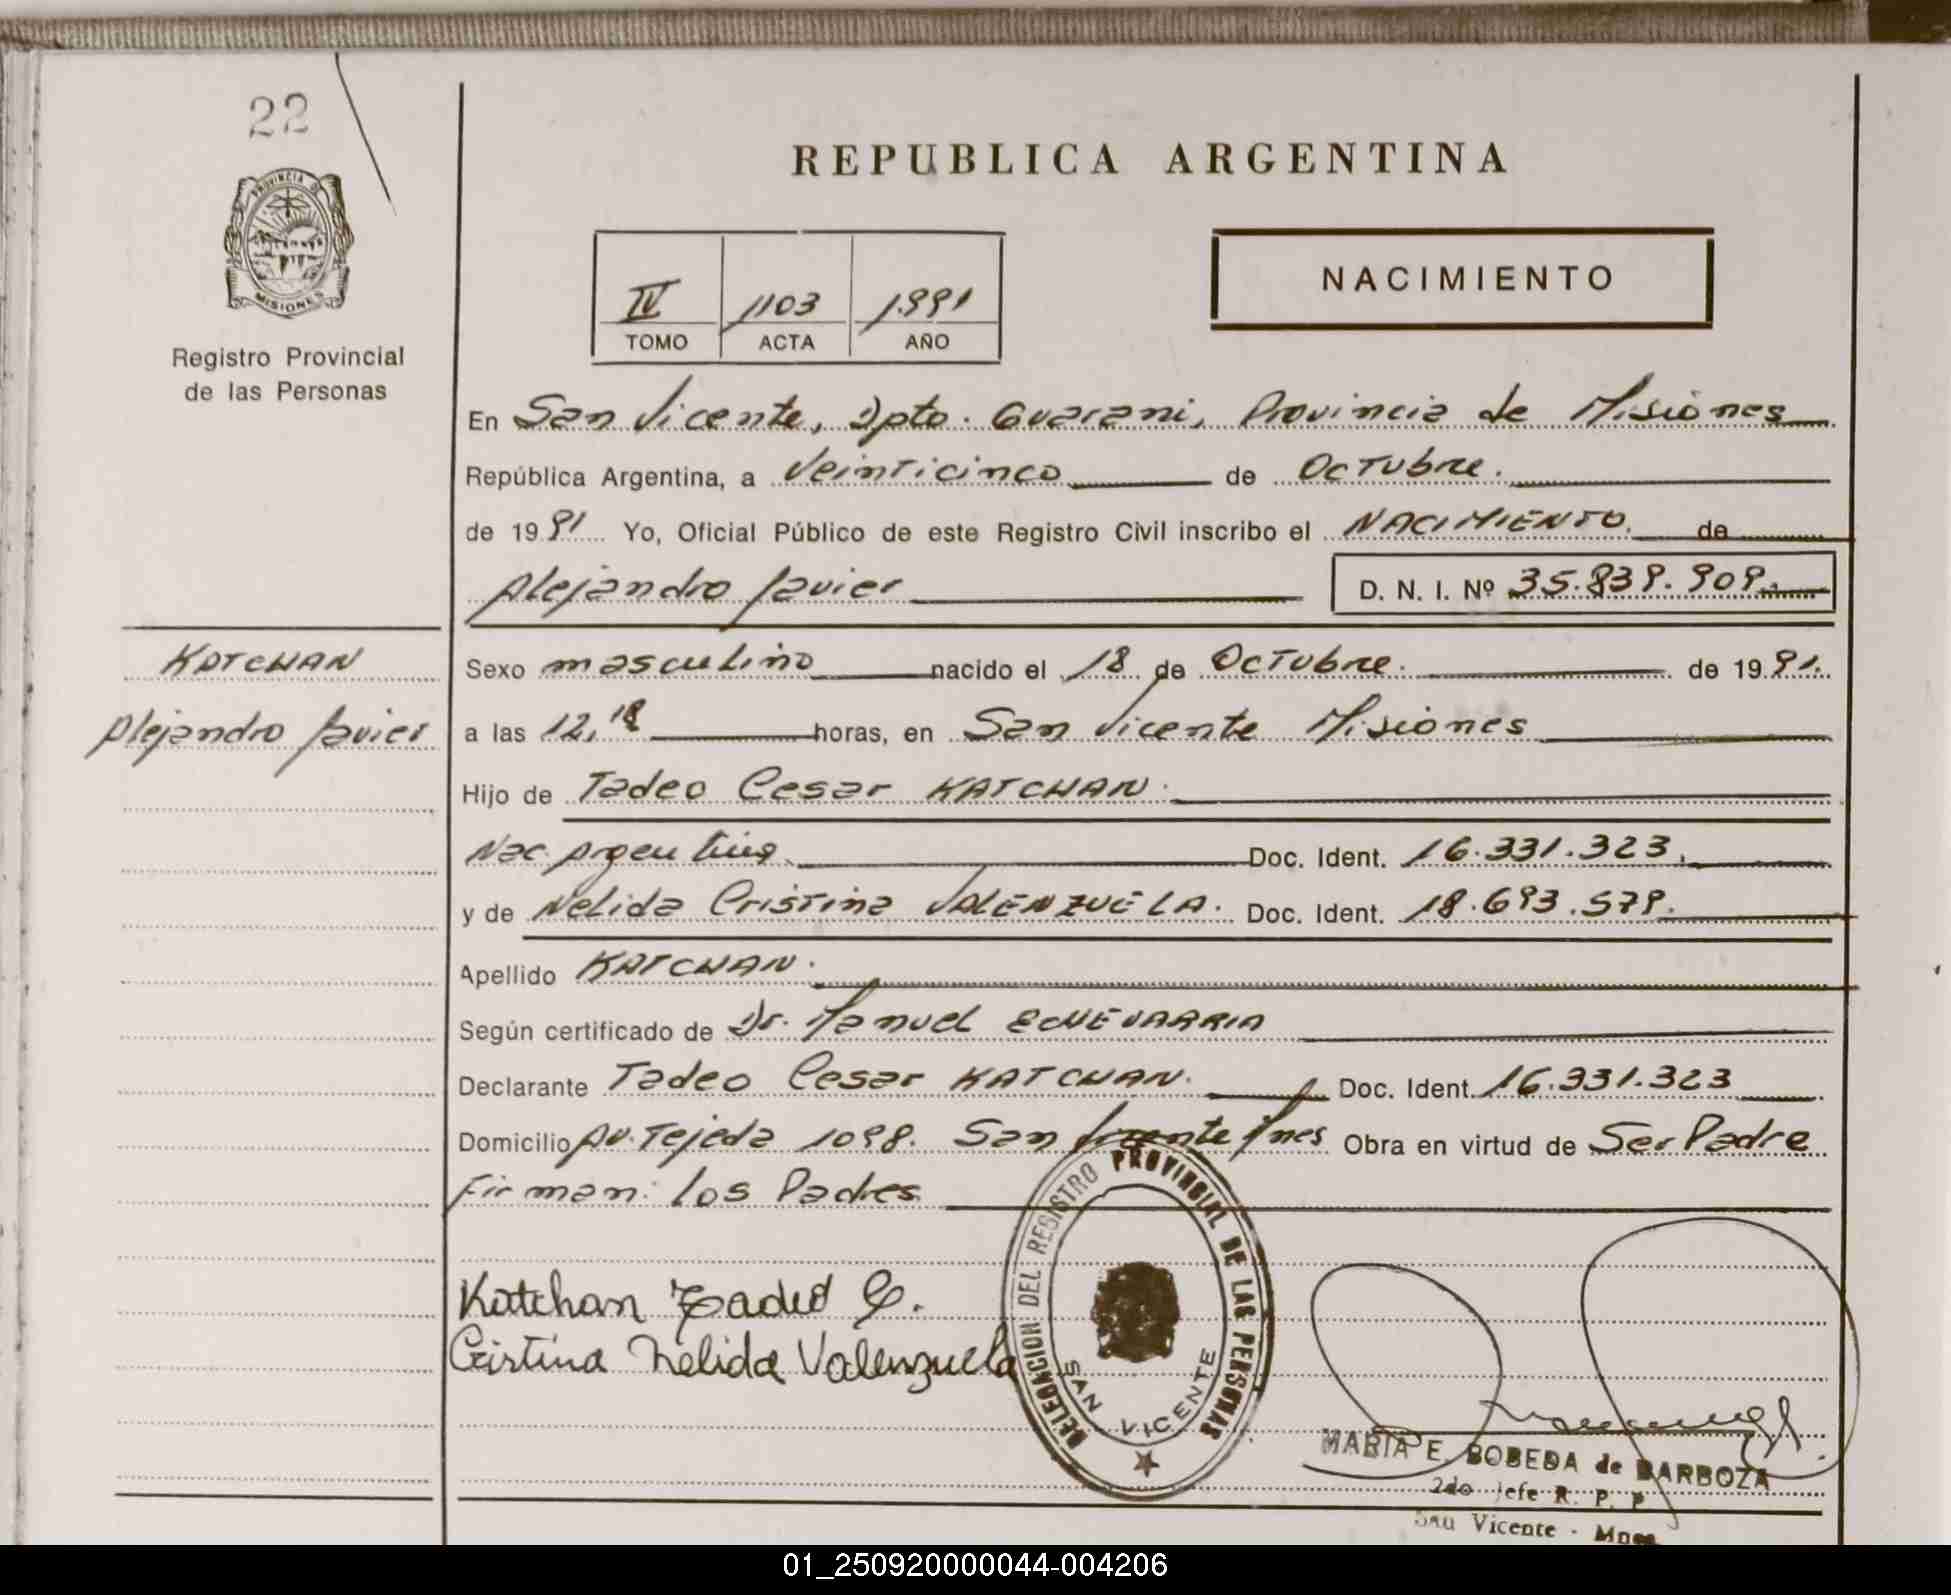 22
PROVINCIA D
MISIONES
Registro Provincial
de las Personas
REPUBLICA ARGENTINA
IV 1103 1.991
TOMO ACTA AÑO
NACIMIENTO
En San Vicente, Dpto. Guarani, Provincia de Misiones
República Argentina, a Veinticinco de Octubre.
de 1991 Yo, Oficial Público de este Registro Civil inscribo el NACIMIENTO. de
Alejandro Javier D. N. I. Nº 35.839.909.-
KATCHAN
Alejandro Javier
Sexo masculino nacido el 18 de Octubre. de 1991.
a las 12,18 horas, en San Vicente Misiones
Hijo de Tadeo Cesar KATCHAN.
Nac. Argentina. Doc. Ident. 16.331.323.
y de Nelida Cristina VALENZUELA. Doc. Ident. 18.693.579.
Apellido KATCHAN.
Según certificado de Dr. Manuel ECHEVARRIA
Declarante Tadeo Cesar KATCHAN. Doc. Ident. 16.331.323
Domicilio Av. Tejeda 1098. San Vicente Mnes Obra en virtud de Ser Padre
Firman: Los Padres
Katchan Tadeo C.
Cristina Nelida Valenzuela
DELEGACION DEL REGISTRO PROVINCIAL DE LAS PERSONAS
SAN VICENTE
MARIA E. BOBEDA de BARBOZA
2do Jefe R. P. P
San Vicente - Mnes
01_250920000044-004206